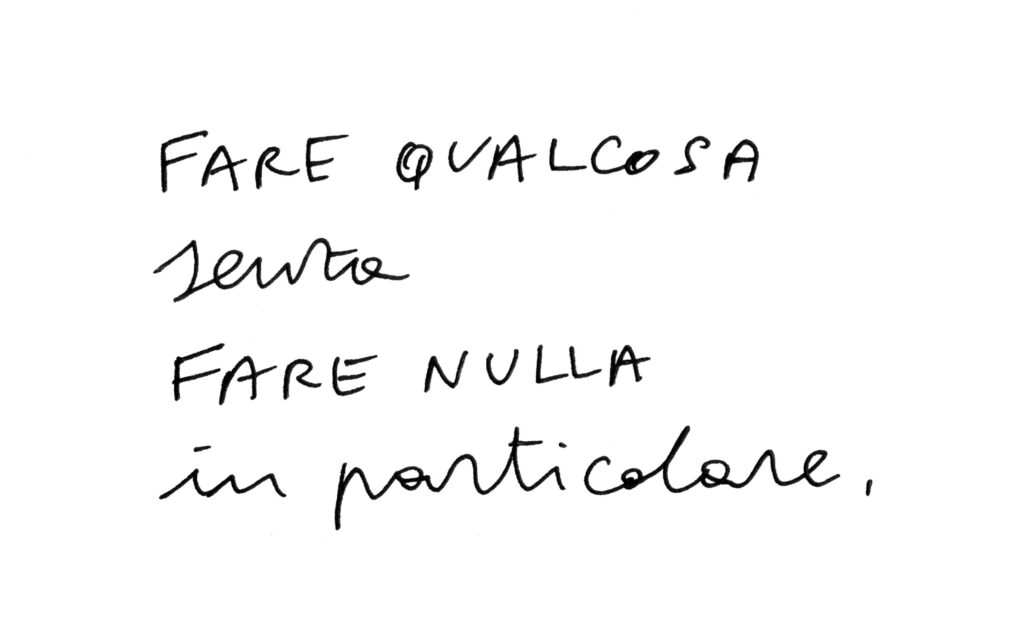 FARE QUALCOSA
senza
FARE NULLA
in particolare.